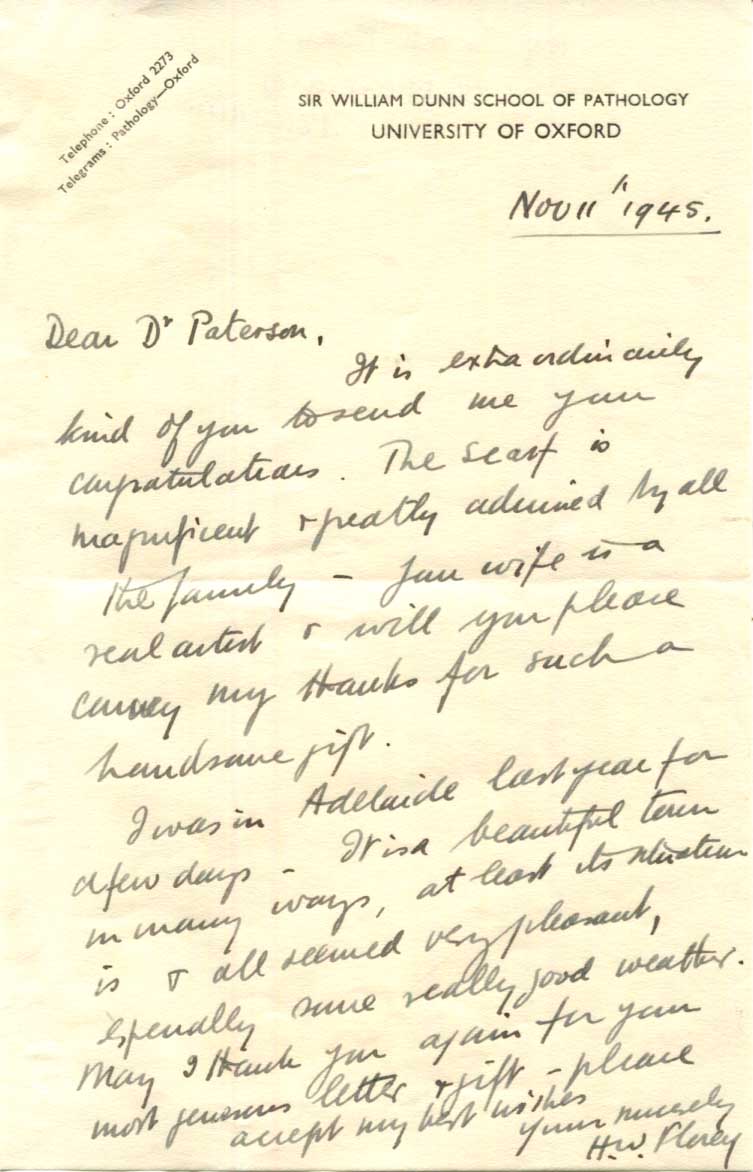 Telephone : Oxford 2273
Telegrams : Pathology—Oxford
SIR WILLIAM DUNN SCHOOL OF PATHOLOGY
UNIVERSITY OF OXFORD
Nov 11 1945.
Dear Dr Paterson,
It is extraordinarily
kind of you to send me your
congratulations. The scarf is
magnificent & greatly admired by all
the family – your wife is a
real artist & will you please
convey my thanks for such a
handsome gift.
I was in Adelaide last year for
a few days – It is a beautiful town
in many ways, at least its situation
is & all seemed very pleasant,
especially some really good weather.
May I thank you again for your
most generous letter & gift – please
accept my best wishes
Yours sincerely
H.W. Florey